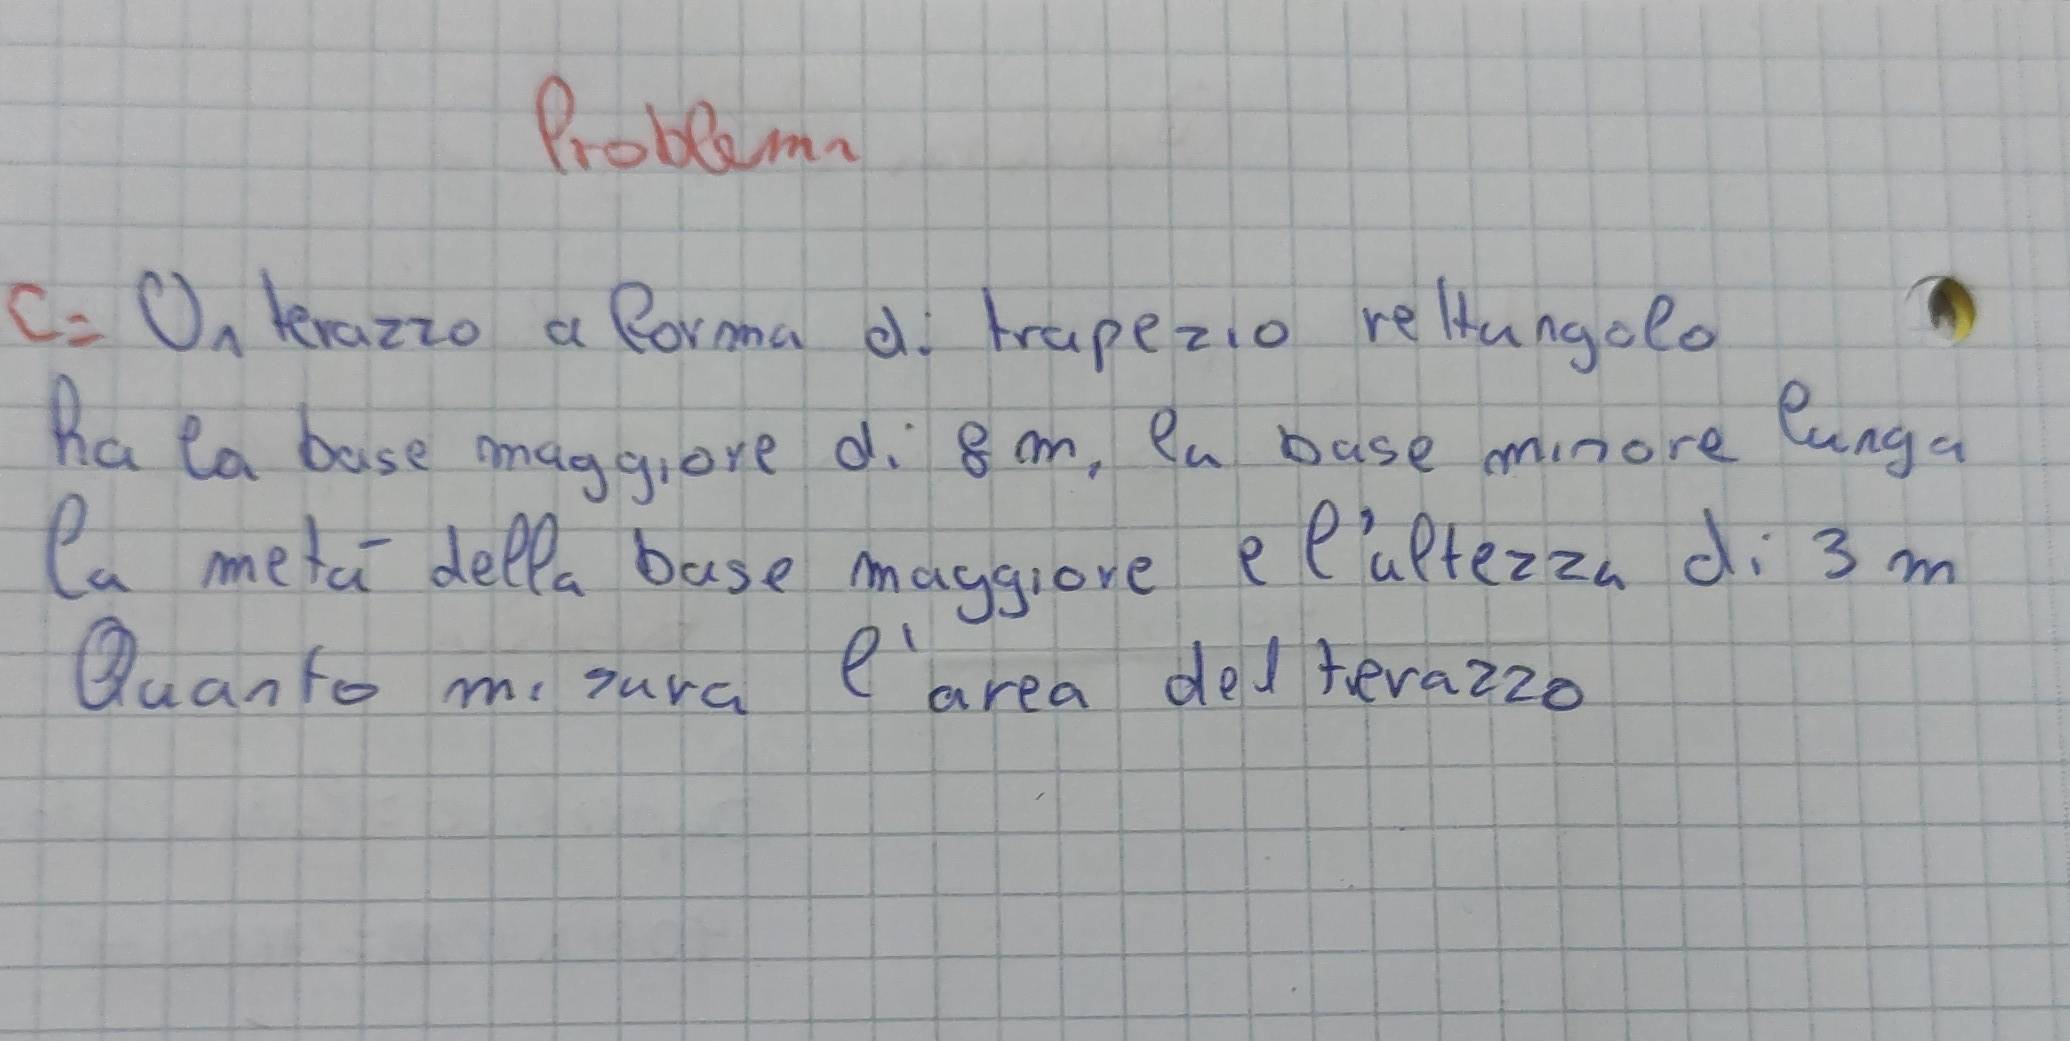 Problema
C= Un terazzo a forma di trapezio rettangolo
ha la base maggiore di 8 m, la base minore lunga
la metà della base maggiore e l'altezza di 3 m
Quanto misura l'area del terazzo